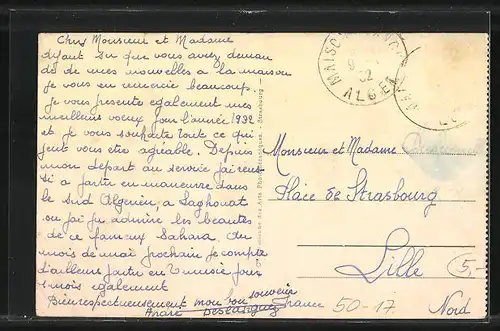 Chers Monsieur et Madame
Ayant su que vous avez deman
dé de mes nouvelles a la maison
je vous en remercie beaucoup.
je vous présente egalement mes
meilleurs voeux pour l'année 1932
et je vous souhaite tout ce qui
peut vous être agréable. Depuis
mon départ au service j'ai réus
si a partir en manœuvre dans
le sud Algerien, a Laghouat
ou j'ai pu admirer les beautés
de ce fameux Sahara. Au
mois de mai prochain je compte
d'ailleurs partir en Tunisie pour
mois egalement
Bien respectueusement mon bon souvenir
André
MAISON
ALGER
32
Strasbourg
Monsieur et Madame
Place de Strasbourg
Lille
France
Nord
50-17
5,-